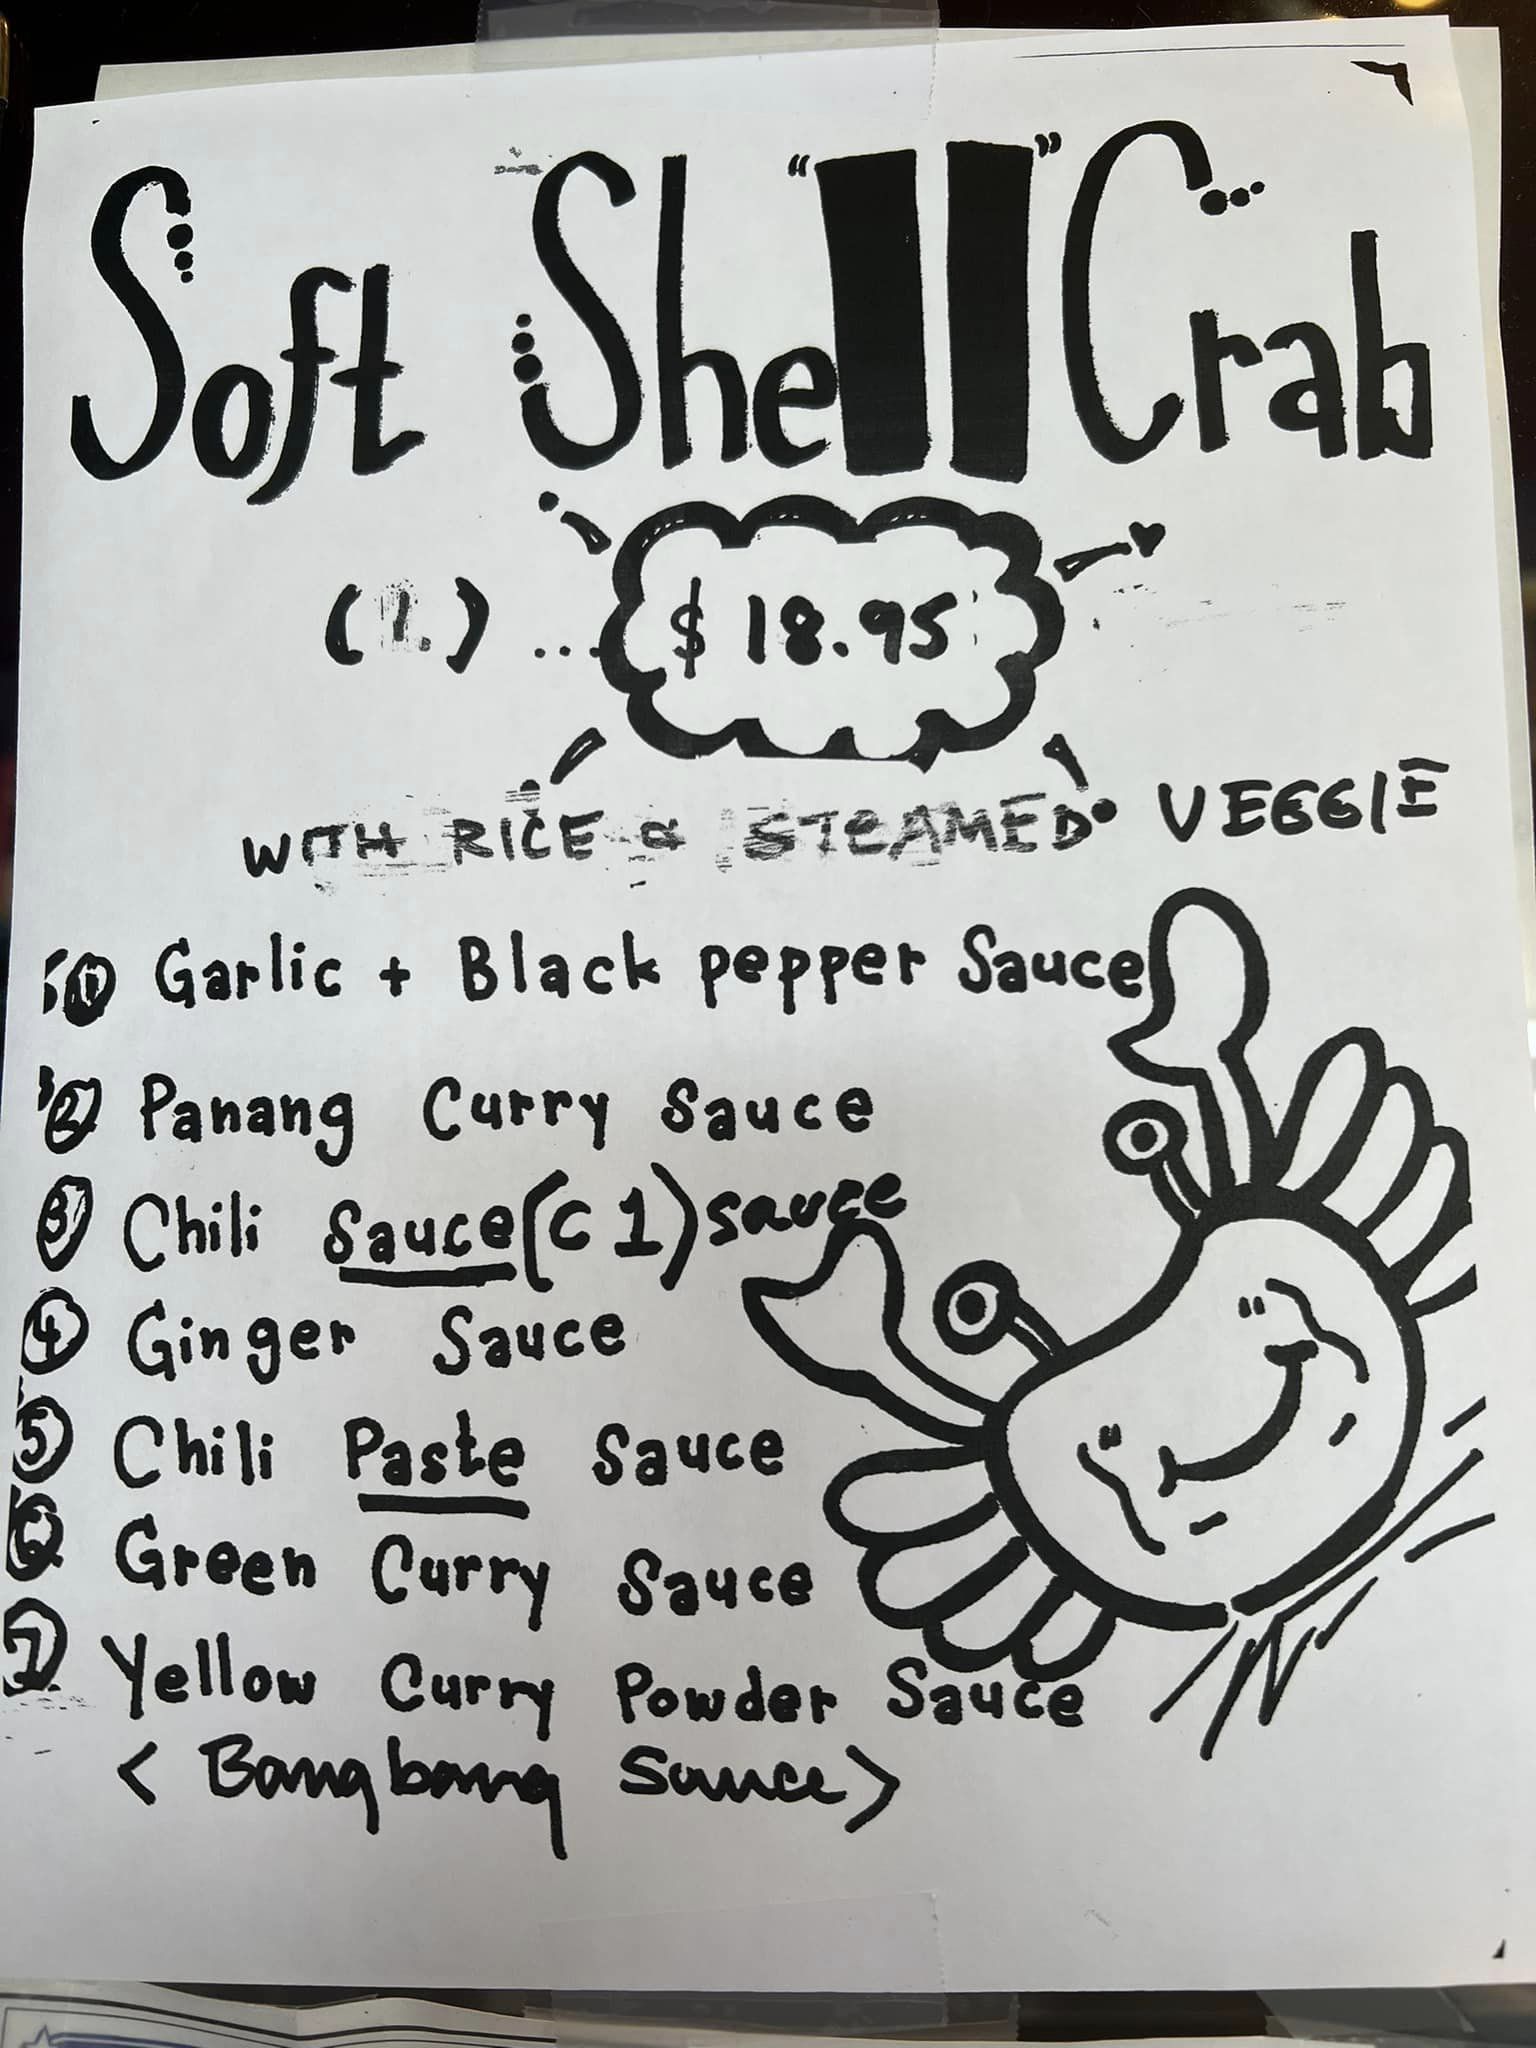 Soft She"ll" Crab
(1.) ... $18.95
WITH RICE & STEAMED VEGGIE
① Garlic + Black pepper Sauce
② Panang Curry Sauce
③ Chili Sauce (C 1) sauce
④ Ginger Sauce
⑤ Chili Paste Sauce
⑥ Green Curry Sauce
⑦ Yellow Curry Powder Sauce
< Bangbang Sauce >